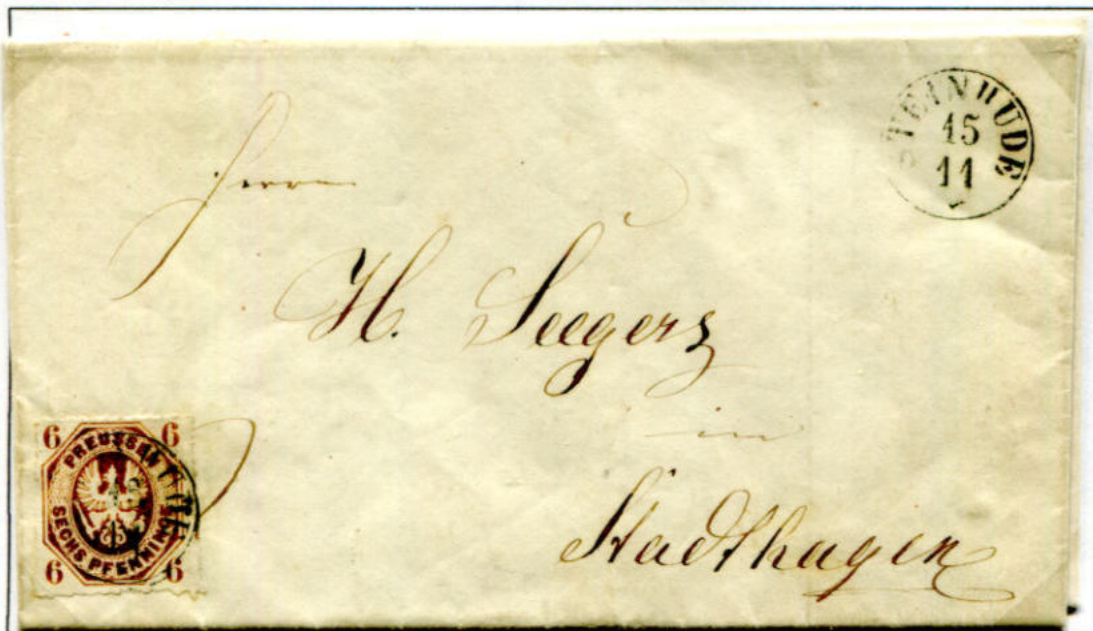 STEINHUDE
15
11
Herrn
H. Seegers
in
Stadthagen
6 6
PREUSSEN
SECHS PFENNINGE
6 6